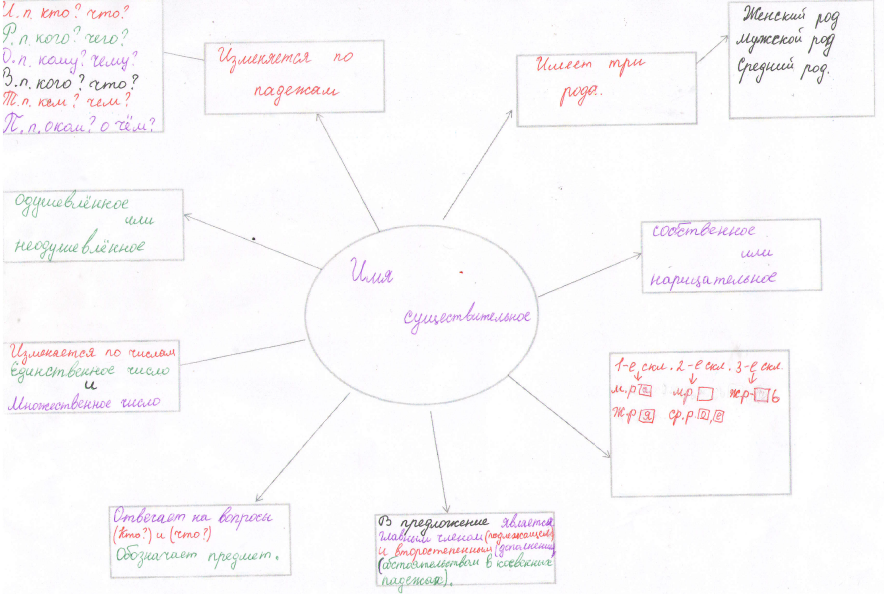 И.п. кто? что?
Р.п. кого? чего?
О.п. кому? чему?
В.п. кого? что?
Т.п. кем? чем?
П.п. о ком? о чём?
Изменяется по
падежам
Имеет три
рода.
Женский род
Мужской род
Средний род.
одушевлённое
или
неодушевлённое
собственное
или
нарицательное
Имя
существительное
Изменяется по числам
Единственное число
и
Множественное число
1-е скл. 2-е скл. 3-е скл.
м.р а мр жр ь
ж.р я ср.р о, е
Отвечает на вопросы
(Кто?) и (что?)
Обозначает предмет.
В предложение является
главным членом (подлежащем)
и второстепенным (дополнение,
(обстоятельством в косвенных
падежах).